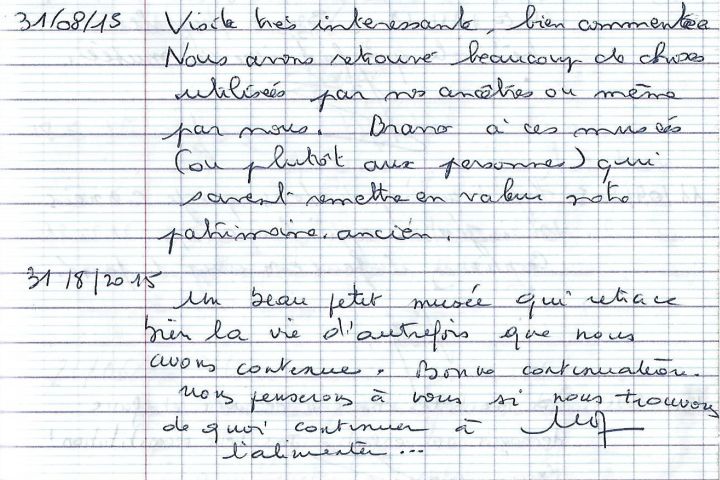 31/08/15 Visite très interessante, bien commentée
Nous avons retrouvé beaucoup de choses
utilisées par nos ancêtres ou même
par nous. Bravo à ces musées
(ou plutôt aux personnes) qui
savent remettre en valeur notre
patrimoine ancien.
31/8/2015
Un beau petit musée qui retrace
bien la vie d'autrefois que nous
avons connue. Bonne continuation.
nous penserons à vous si nous trouvons
de quoi continuer à
l'alimenter...